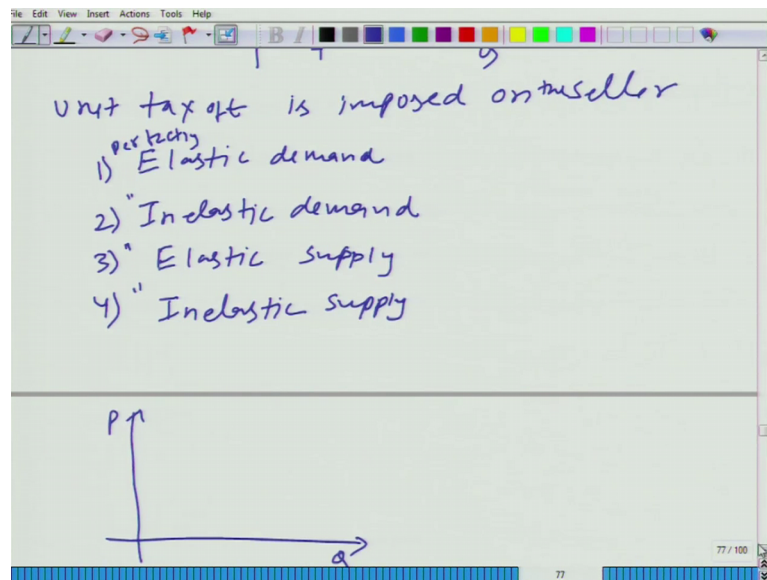 File Edit View Insert Actions Tools Help
B I
unit tax of t is imposed on the seller
perfectly
1) Elastic demand
2) " Inelastic demand
3) " Elastic supply
4) " Inelastic supply
P
Q
77 / 100
77